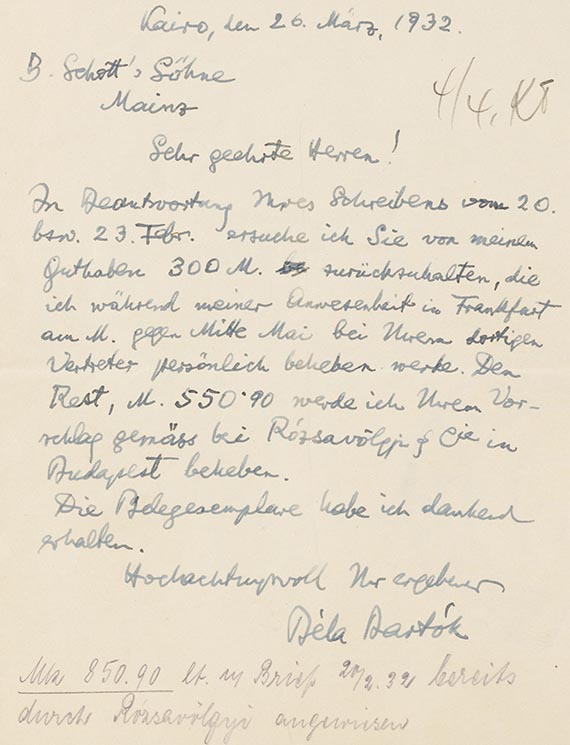 Kairo, den 26. März, 1932.
B. Schott's Söhne
Mainz
4/4. 
Sehr geehrte Herren!
In Beantwortung Ihres Schreibens vom 20.
bzw. 23. Febr. ersuche ich Sie von meinem
Guthaben 300 M. zurückzuhalten, die
ich während meiner Anwesenheit in Frankfurt
am M. gegen Mitte Mai bei Ihrem dortigen
Vertreter persönlich beheben werde. Den
Rest, M. 550·90 werde ich Ihrem Vor-
schlag gemäss bei Rózsavölgyi & Cie in
Budapest beheben.
Die Belegexemplare habe ich dankend
erhalten.
Hochachtungsvoll Ihr ergebener
Béla Bartók
Mk 850.90 lt. Brief 20/2.32 bereits
durch Rózsavölgyi angewiesen